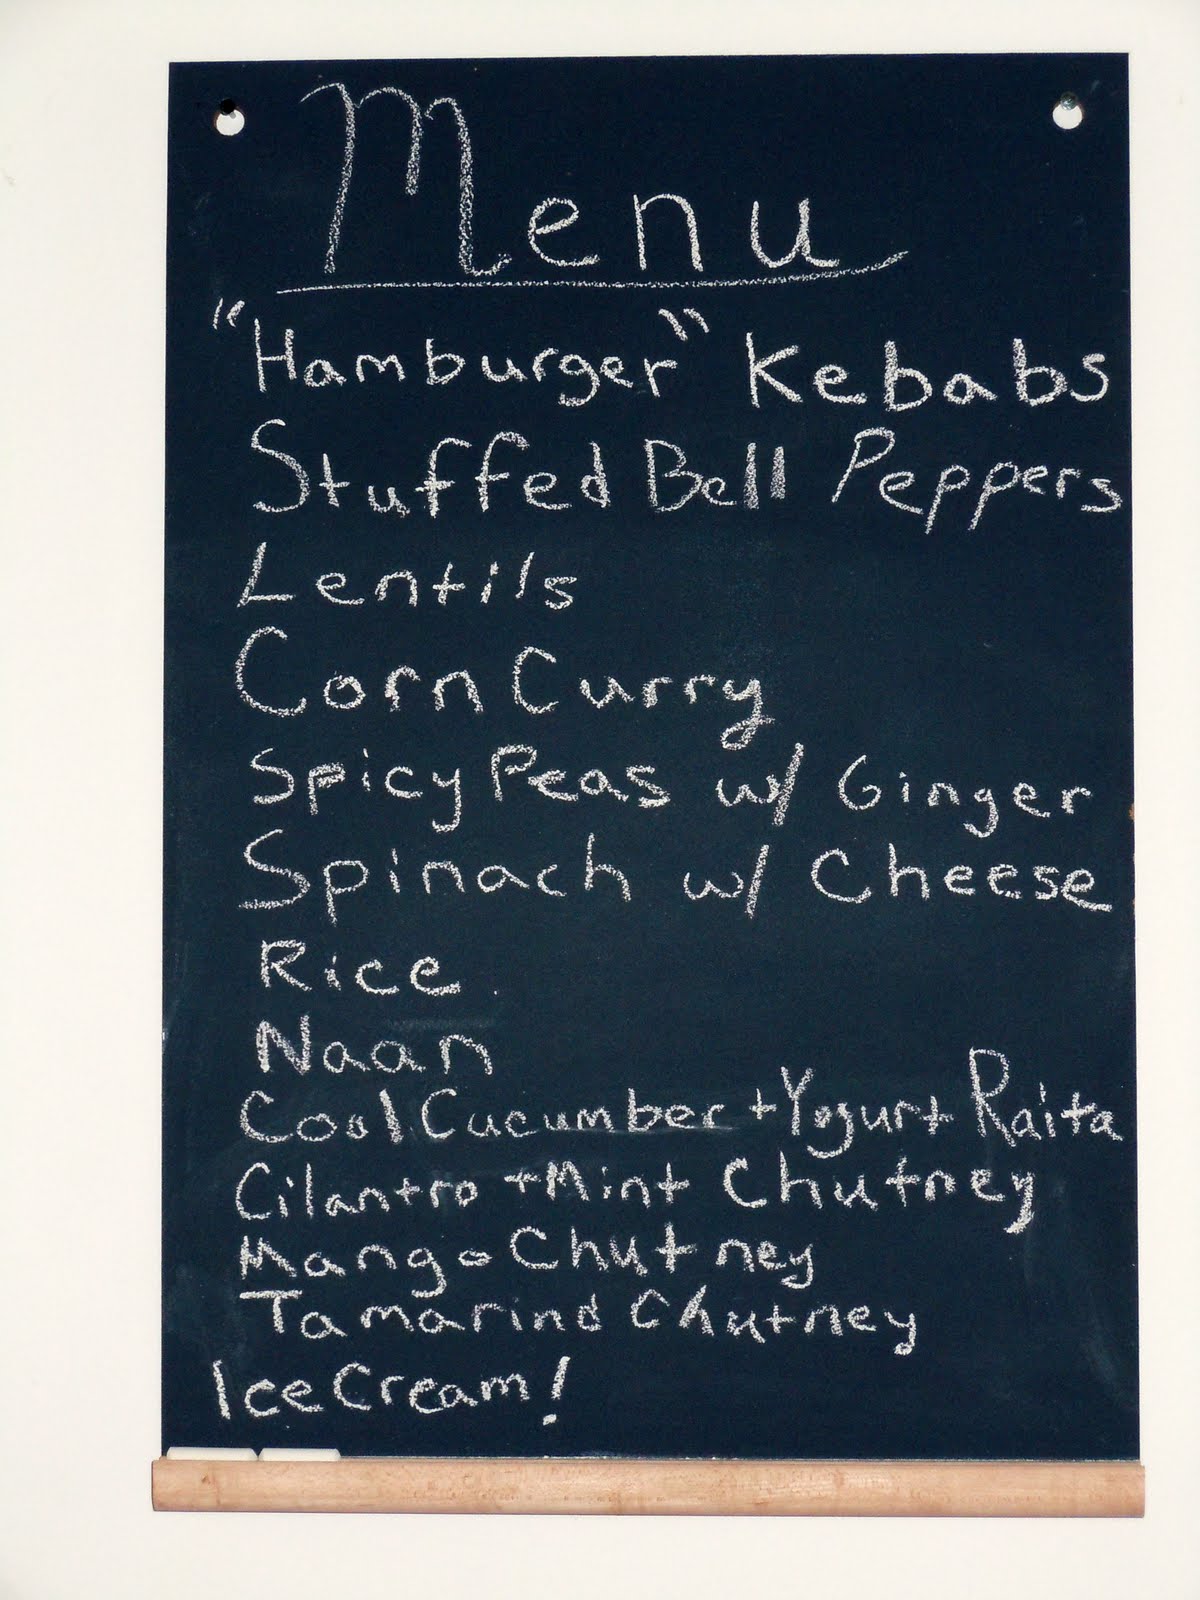 Menu
"Hamburger" Kebabs
Stuffed Bell Peppers
Lentils
Corn Curry
Spicy Peas w/ Ginger
Spinach w/ Cheese
Rice
Naan
Cool Cucumber + Yogurt Raita
Cilantro + Mint Chutney
Mango Chutney
Tamarind Chutney
Ice Cream!